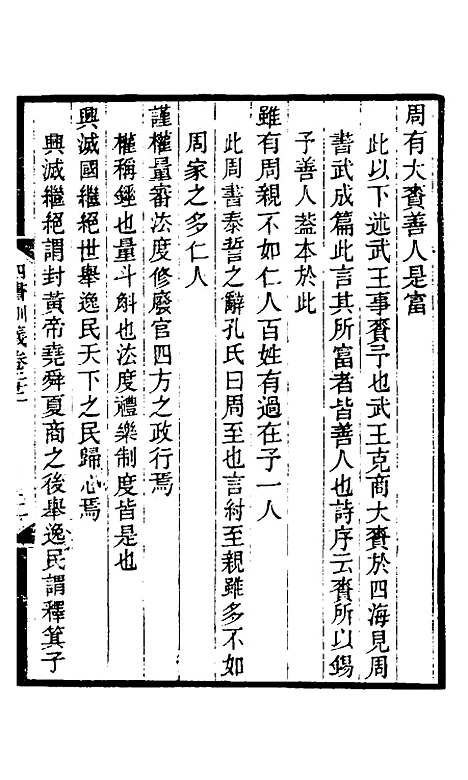 周有大賚善人是富
此以下述武王事賚予也武王克商大賚於四海見周
書武成篇此言其所富者皆善人也詩序云賚所以錫
予善人葢本於此
雖有周親不如仁人百姓有過在予一人
此周書泰誓之辭孔氏曰周至也言紂至親雖多不如
周家之多仁人
謹權量審法度修廢官四方之政行焉
權稱錘也量斗斛也法度禮樂制度皆是也
興滅國繼絕世舉逸民天下之民歸心焉
興滅繼絕謂封黃帝堯舜夏商之後舉逸民謂釋箕子
四書訓義卷二十二